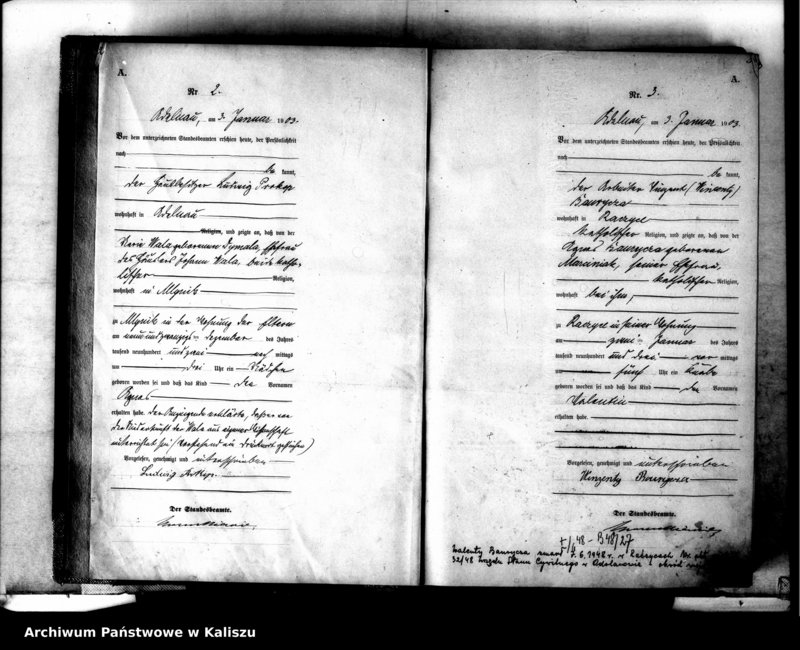 A.
Nr. 2.
Adelnau, am 3. Januar 1903.
Vor dem unterzeichneten Standesbeamten erschien heute, der Persönlichkeit
nach
be kannt,
der Ludwig Prokop
wohnhaft in Adelnau
Religion, und zeigte an, daß von der
Wala geborenen Dymala, Ehefrau
des Johann Wala, beide katho-
lischer Religion,
wohnhaft in Mlynik
zu Mlynik in der Wohnung der Eltern
am neunundzwanzigsten Dezember des Jahres
tausend neunhundert und zwei nach mittags
um drei Uhr ein Mädchen
geboren worden sei und daß das Kind den Vornamen
Agnes
erhalten habe. Der Anzeigende erklärte, daß er von
der Niederkunft der Wala aus eigener Wissenschaft
unterrichtet sei.
Vorgelesen, genehmigt und unterschrieben
Ludwig Prokop.
Der Standesbeamte.
A.
Nr. 3.
Adelnau, am 3. Januar 1903.
Vor dem unterzeichneten Standesbeamten erschien heute, der Persönlichkeit
nach
be kannt,
der Arbeiter Vinzent (Wincenty)
wohnhaft in Raczyce
katholischer Religion, und zeigte an, daß von der
Agnes geborenen
Marciniak, seiner Ehefrau,
katholischer Religion,
wohnhaft bei ihm,
zu Raczyce in seiner Wohnung
am zwei Januar des Jahres
tausend neunhundert und drei vor mittags
um fünf Uhr ein Knabe
geboren worden sei und daß das Kind den Vornamen
Valentin
erhalten habe.
Vorgelesen, genehmigt und unterschrieben
Der Standesbeamte.
Walenty zmarł 2.6.1948 r. w Raczycach Nr akt
32/48 Urzędu Stanu Cywilnego w Odolanowie
Archiwum Państwowe w Kaliszu